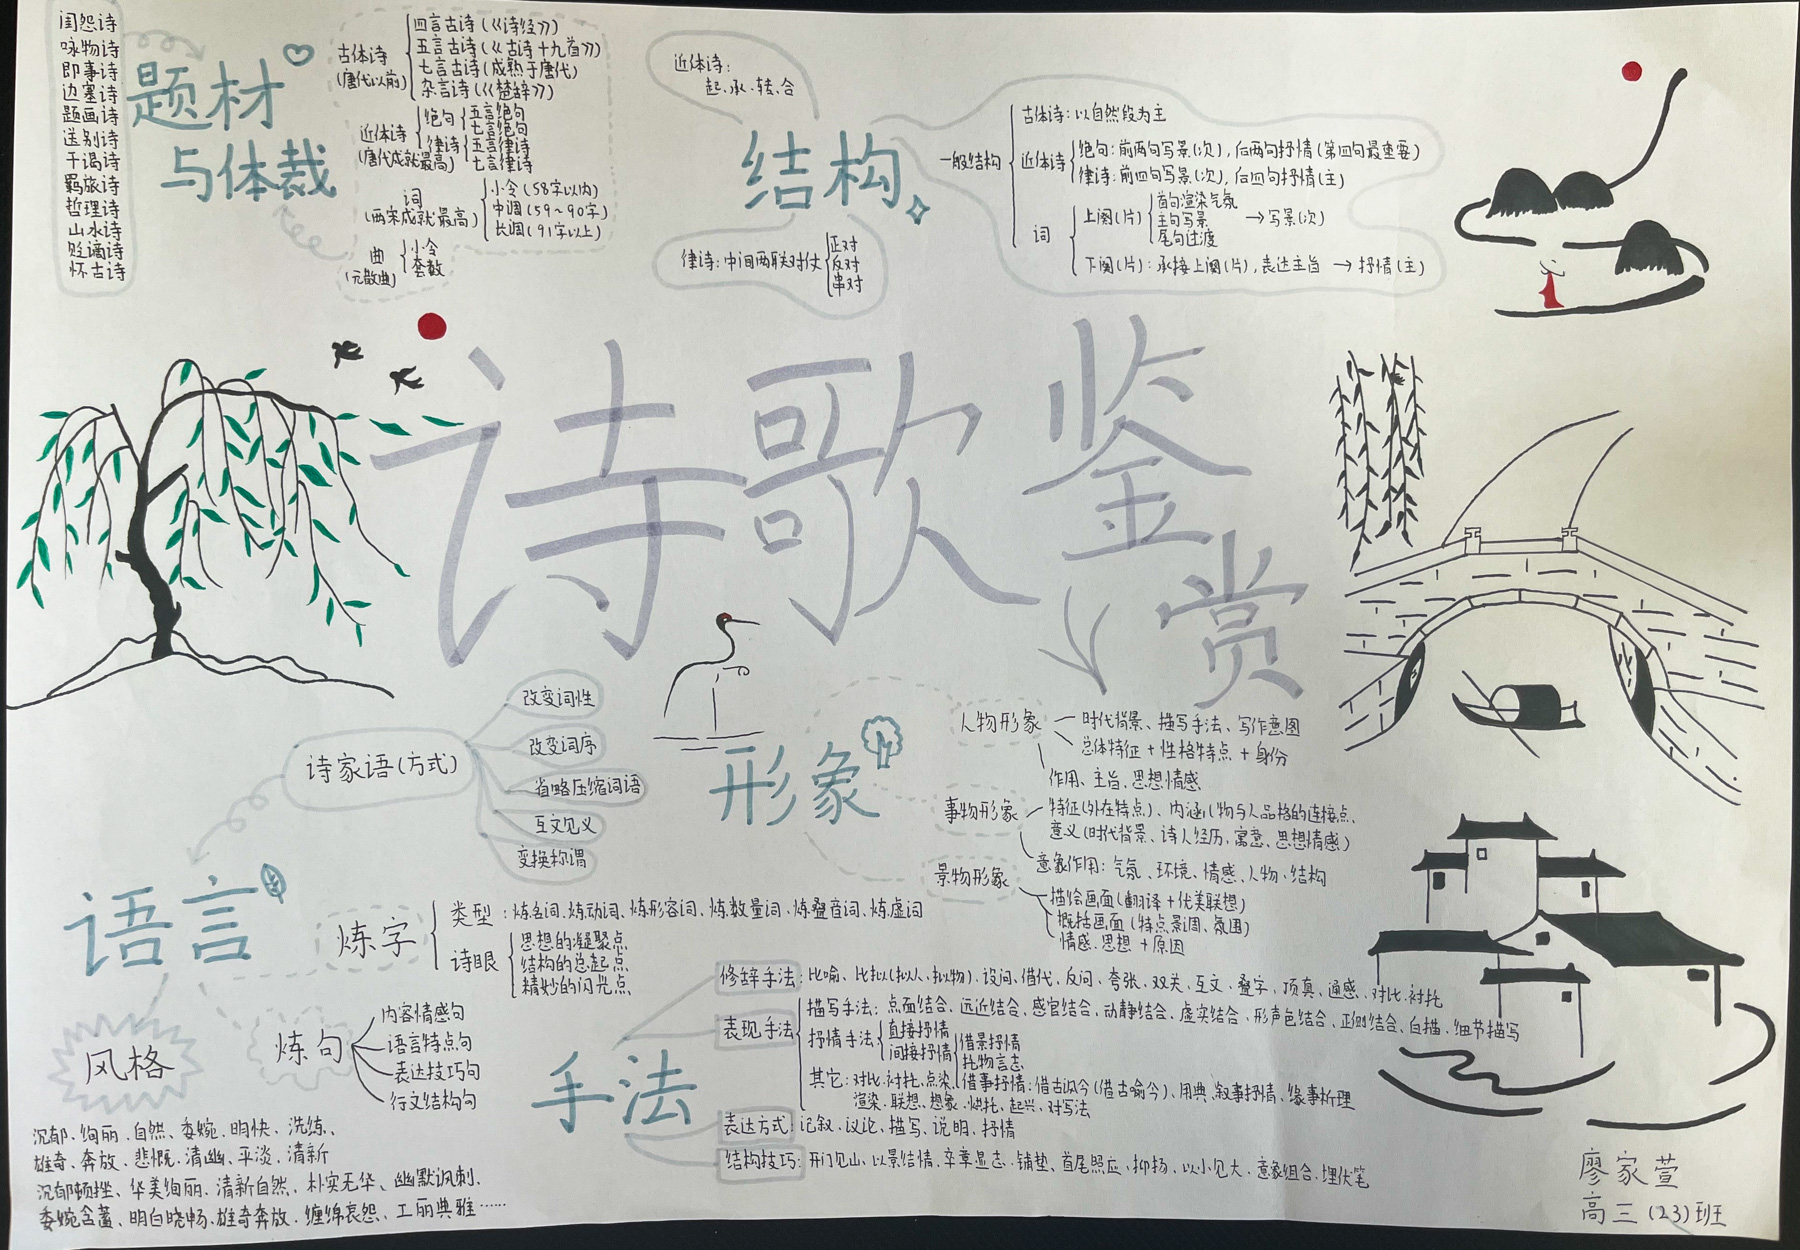 题材
与体裁
闺怨诗
咏物诗
即事诗
边塞诗
题画诗
送别诗
干谒诗
羁旅诗
哲理诗
山水诗
贬谪诗
怀古诗
古体诗
(唐代以前)
四言古诗(《诗经》)
五言古诗(《古诗十九首》)
七言古诗(成熟于唐代)
杂言诗(《楚辞》)
近体诗
(唐代成就最高)
绝句
五言绝句
七言绝句
律诗
五言律诗
七言律诗
词
(两宋成就最高)
小令(58字以内)
中调(59~90字)
长调(91字以上)
曲
(元散曲)
小令
套数
结构
近体诗:
起、承、转、合
律诗:中间两联对仗
正对
反对
串对
一般结构
古体诗:以自然段为主
近体诗
绝句:前两句写景(次),后两句抒情(第四句最重要)
律诗:前四句写景(次),后四句抒情(主)
词
上阕(片)
首句渲染气氛
主句写景
尾句过渡
→写景(次)
下阕(片):承接上阕(片),表达主旨→抒情(主)
诗歌鉴赏
诗家语(方式)
改变词性
改变词序
省略压缩词语
互文见义
变换称谓
形象
人物形象
时代背景、描写手法、写作意图
总体特征+性格特点+身份
作用、主旨、思想情感
事物形象
特征(外在特点)、内涵(物与人品格的连接点、
意义(时代背景、诗人经历、寓意、思想情感)
意象作用:气氛、环境、情感、人物、结构
景物形象
描绘画面(翻译+优美联想)
概括画面(特点景调、氛围)
情感、思想+原因
语言
炼字
类型:炼名词、炼动词、炼形容词、炼数量词、炼叠音词、炼虚词
诗眼
思想的凝聚点
结构的总起点
精妙的闪光点
炼句
内容情感句
语言特点句
表达技巧句
行文结构句
风格
沉郁、绚丽、自然、委婉、明快、洗练、
雄奇、奔放、悲慨、清幽、平淡、清新
沉郁顿挫、华美绚丽、清新自然、朴实无华、幽默讽刺、
委婉含蓄、明白晓畅、雄奇奔放、缠绵哀怨、工丽典雅……
手法
修辞手法:比喻、比拟(拟人、拟物)、设问、借代、反问、夸张、双关、互文、叠字、顶真、通感、对比、衬托
表现手法
描写手法:点面结合、远近结合、感官结合、动静结合、虚实结合、形声色结合、正侧结合、白描、细节描写
抒情手法
直接抒情
间接抒情
借景抒情
托物言志
借事抒情:借古讽今(借古喻今)、用典、叙事抒情、缘事析理
其它:对比、衬托、点染、
渲染、联想、想象、烘托、起兴、对写法
表达方式:记叙、议论、描写、说明、抒情
结构技巧:开门见山、以景结情、卒章显志、铺垫、首尾照应、抑扬、以小见大、意象组合、埋伏笔
廖家萱
高三(23)班